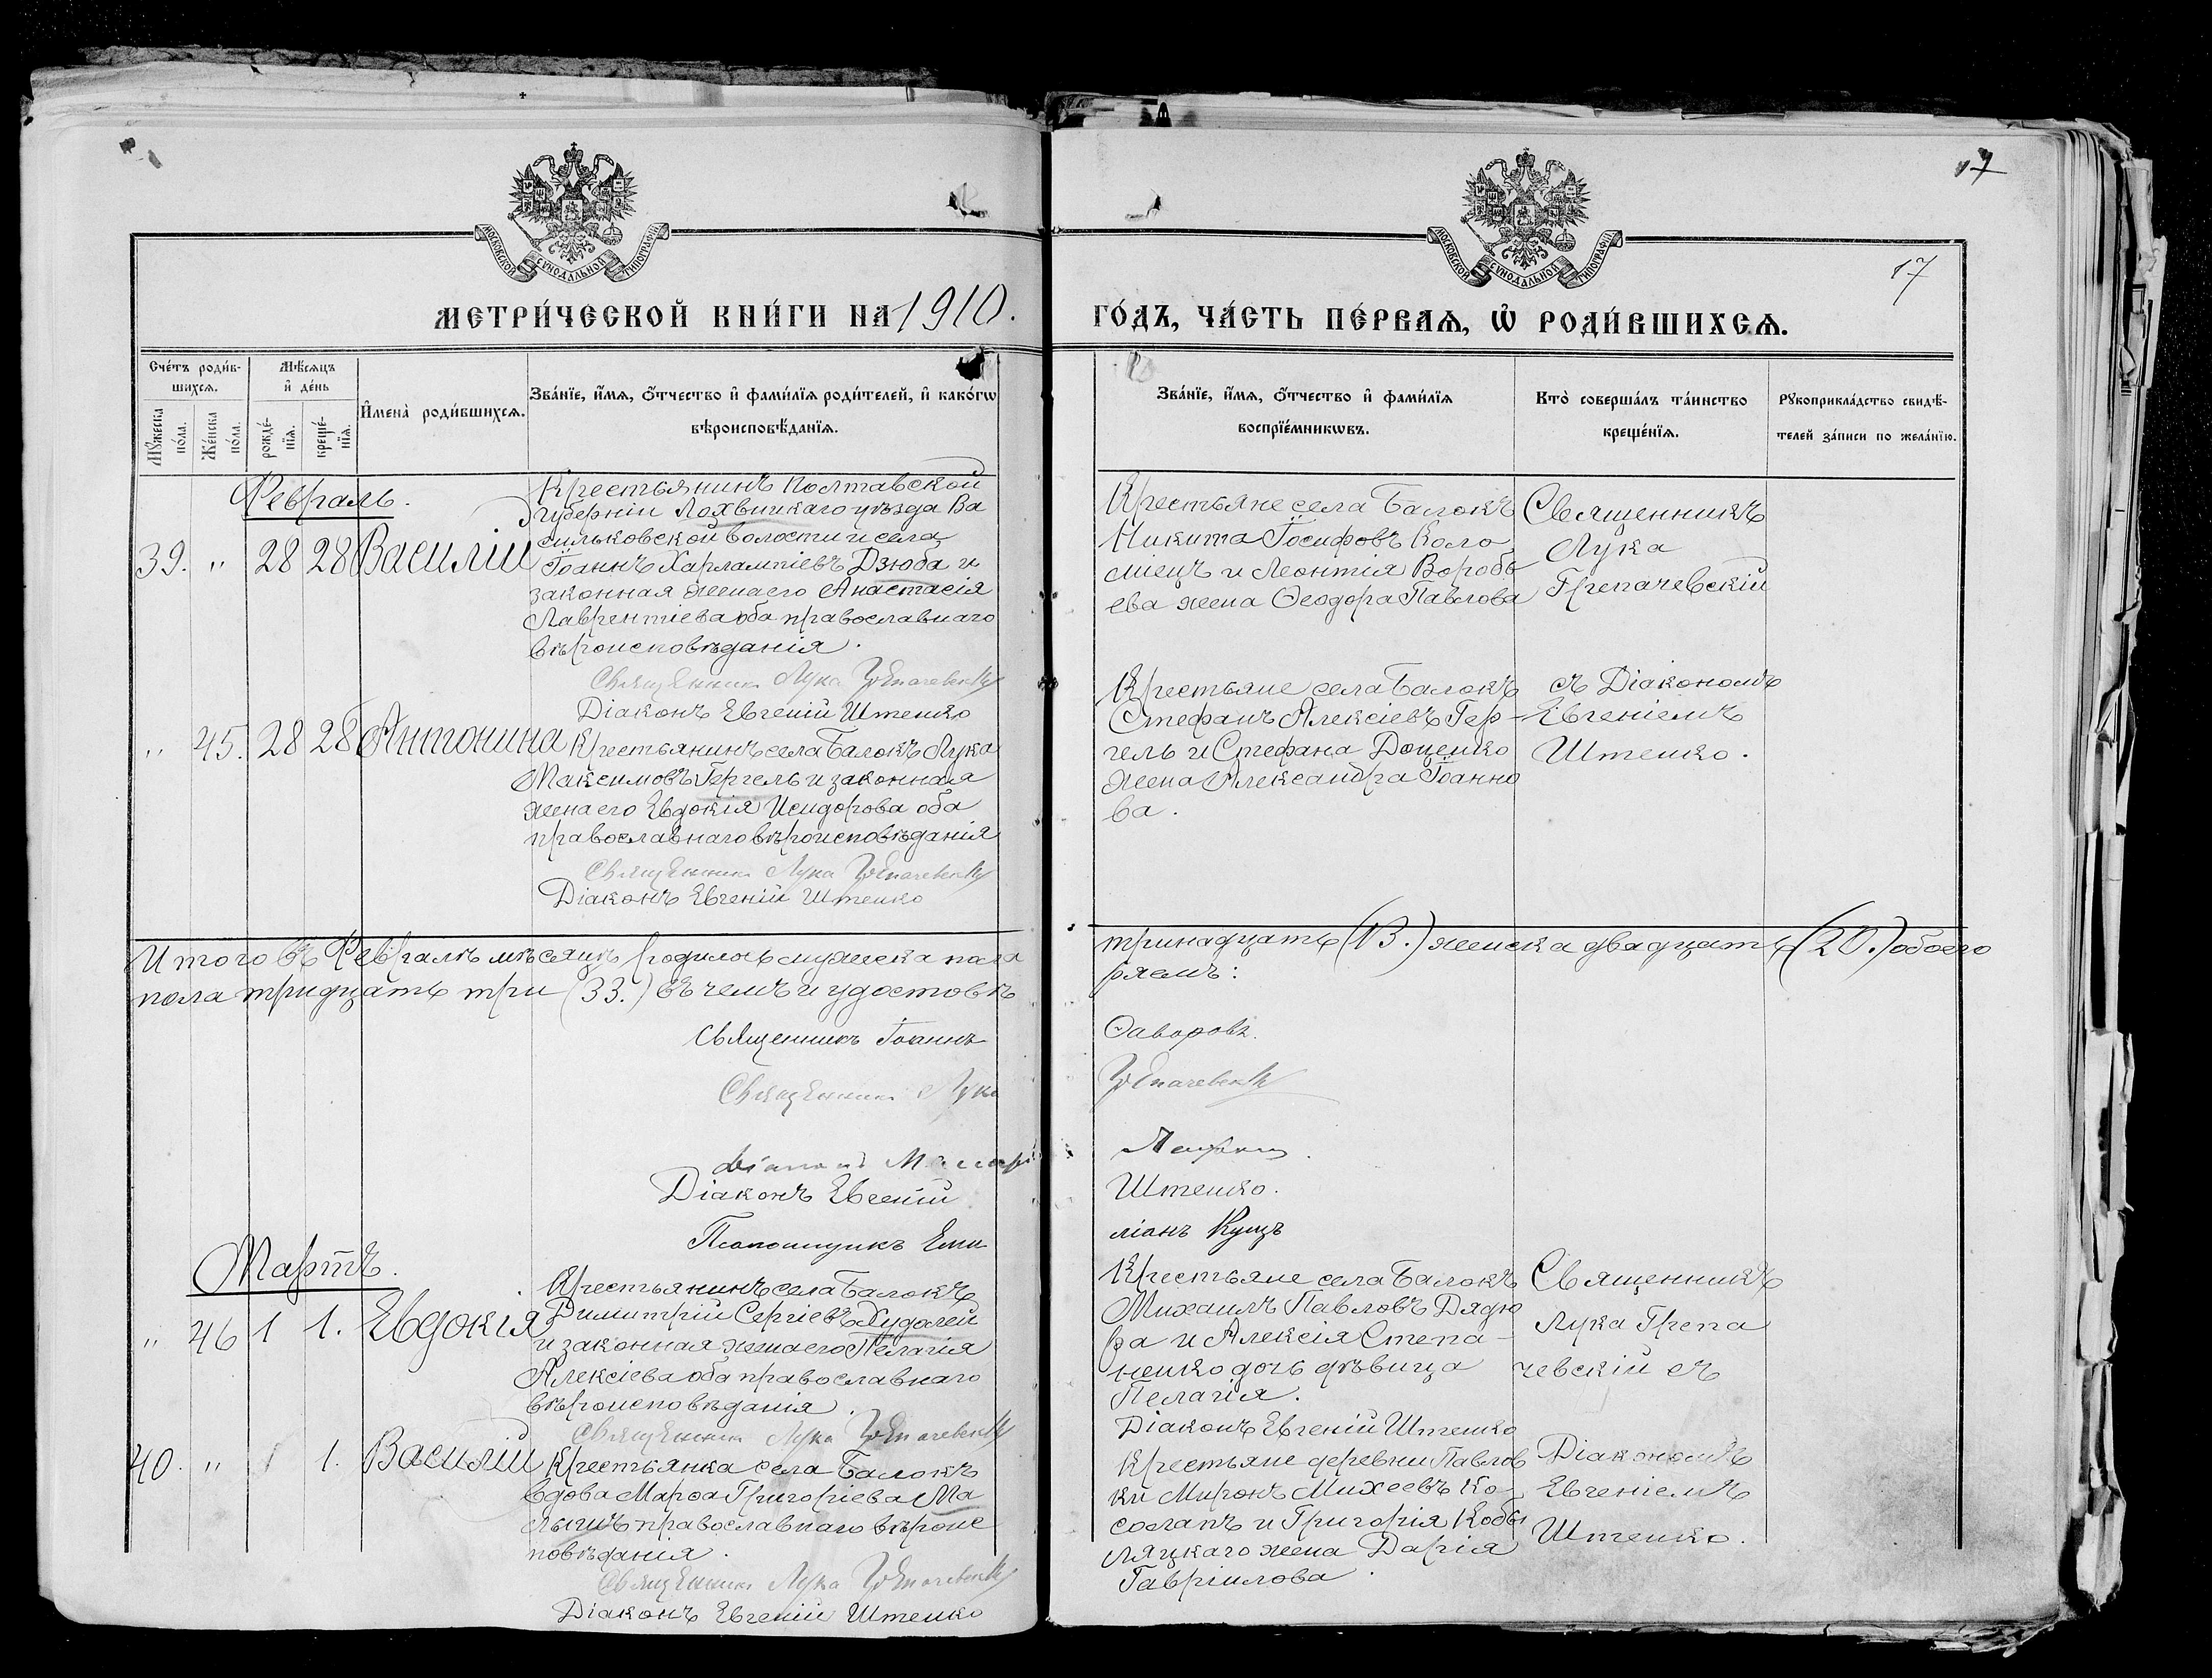 17
МОСКОВСКОЙ СУНОДАЛЬНОЙ ТИПОГРАФІИ
МОСКОВСКОЙ СУНОДАЛЬНОЙ ТИПОГРАФІИ
17
МЕТРИ́ЧЕСКОЙ КНИ́ГИ НА 1910.
ГО́ДЪ, ЧА́СТЬ ПЕ́РВАѦ, Ѡ҆ РОДИ́ВШИХСѦ.
Сче́тъ роди́в-
шихсѧ.
Мꙋ́жеска по́ла.
Же́нска по́ла.
Мѣ́сѧцъ
и҆ де́нь
рожде́-
нїѧ.
креще́-
нїѧ.
И҆мена̀ роди́вшихсѧ.
Зва́нїе, и҆́мѧ, ѻ҆́тчество и҆ фами́лїѧ роди́телей, и҆ како́гѡ
вѣроисповѣ́данїѧ.
Зва́нїе, и҆́мѧ, ѻ҆́тчество и҆ фами́лїѧ
воспрїе́мникѡвъ.
Кто̀ соверша́лъ та́инство
креще́нїѧ.
Рꙋкоприкла́дство свидѣ́-
телей за́писи по жела́нїю.
Февраль.
39. " 28 28 Василій
Крестьянинъ Полтавской
губерніи Лохвицкаго уѣзда Ва
сильковской волости и села
Іоаннъ Харлампіевъ Дзюба и
законная жена его Анастасія
Лаврентіева оба православнаго
вѣроисповѣданія.
Священникъ Лука Грепачевскій
Діаконъ Евгеній Штенко
Крестьяне села Балокъ
Никита Іосифовъ Коло
міецъ и Леонтія Воробь
ева жена Ѳеодора Павлова
Священникъ
Лука
Грепачевскій
" 45. 28 28 Антонина
Крестьянинъ села Балокъ Лука
Максимовъ Гергель и законная
жена его Евдокія Исидорова оба
православнаго вѣроисповѣданія
Священникъ Лука Грепачевскій
Діаконъ Евгеній Штенко
Крестьяне села Балокъ
Стефанъ Алексіевъ Гер-
гель и Стефана Доценко
жена Александра Іоанно
ва.
съ Діакономъ
Евгеніемъ
Штенко.
Итого въ Февралѣ мѣсяцѣ родилось мужеска пола тринадцать (13.) женска двадцать (20.) обоего
пола тридцать три (33.) въ чемъ и удостовѣ
ряемъ:
Священникъ Іоаннъ Ѳаворовъ.
Священникъ Лука Грепачевскій
Діаконъ
Діаконъ Евгеній Штенко.
ПсаломщикъЕми
ліанъ Куцъ
Мартъ.
" 46 1 1. Евдокія
Крестьянинъ села Балокъ
Димитрій Сергіевъ Худолей
и законная жена его Пелагія
Алексіева оба православнаго
вѣроисповѣданія.
Священникъ Лука Грепачевскій
Крестьяне села Балокъ
Михаилъ Павловъ Дядю
ра и Алексія Степа-
ненко дочь дѣвица
Пелагія.
Діаконъ Евгеній Штенко
Священникъ
Лука Грепа
чевскій съ
40. " 1 1. Василій
Крестьянка села Балокъ
вдова Марѳа Григоріева Ма
лышъ православнаго вѣроис
повѣданія.
Священникъ Лука Грепачевскій
Діаконъ Евгеній Штенко
Крестьяне деревни Павлов
ки Миронъ Михеевъ Ко
солапъ и Григорія Кобы
ляцкаго жена Дарія
Гавріилова.
Діакономъ
Евгеніемъ
Штенко.